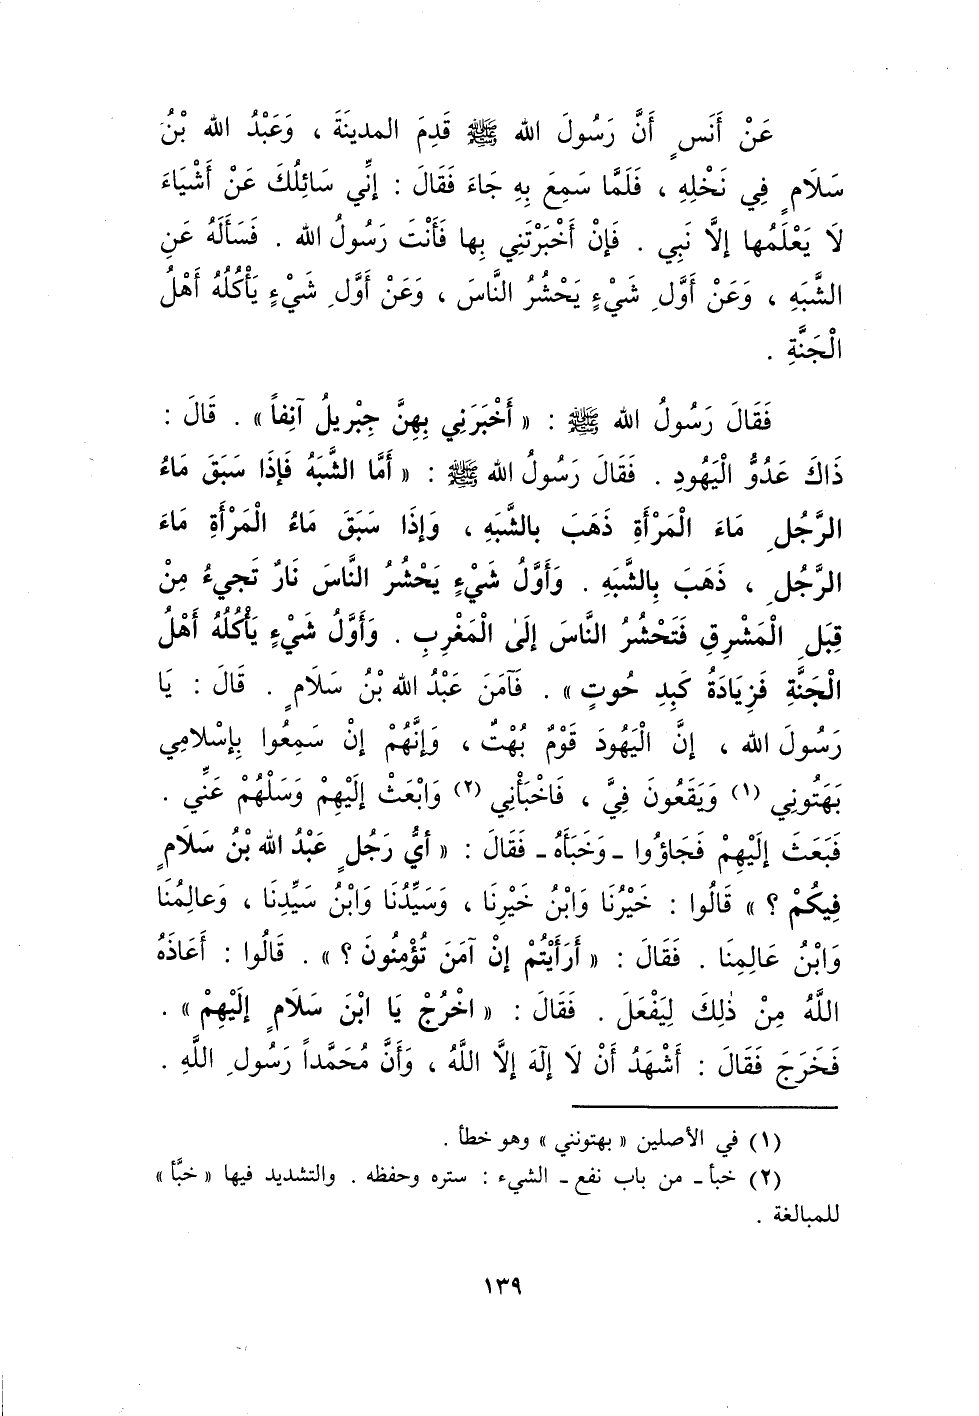 عَنْ أَنَسٍ أَنَّ رَسُولَ الله ﷺ قَدِمَ المدينَةَ ، وَعَبْدُ الله بْنُ
سَلَامٍ فِي نَخْلِهِ ، فَلَمَّا سَمِعَ بِهِ جَاءَ فَقَالَ : إِنِّي سَائِلُكَ عَنْ أَشْيَاءَ
لَا يَعْلَمُها إلَّا نَبِي . فَإِنْ أَخْبَرْتَنِي بِها فَأَنْتَ رَسُولُ الله . فَسَأَلَهُ عَنِ
الشَّبَهِ ، وَعَنْ أَوَّلِ شَيْءٍ يَحْشُرُ النَّاسَ ، وَعَنْ أَوَّلِ شَيْءٍ يَأْكُلُهُ أَهْلُ
الْجَنَّةِ .
فَقَالَ رَسُولُ الله ﷺ : « أَخْبَرَنِي بِهِنَّ جِبْرِيلُ آنِفاً » . قَالَ :
ذَاكَ عَدُوُّ الْيَهُودِ . فَقَالَ رَسُولُ الله ﷺ : « أَمَّا الشَّبَهُ فَإِذَا سَبَقَ مَاءُ
الرَّجُلِ مَاءَ الْمَرْأَةِ ذَهَبَ بالشَّبَهِ ، وَإِذَا سَبَقَ مَاءُ الْمَرْأَةِ مَاءَ
الرَّجُلِ ، ذَهَبَ بِالشَّبَهِ . وَأَوَّلُ شَيْءٍ يَحْشُرُ النَّاسَ نَارٌ تَجِيءُ مِنْ
قِبَلِ الْمَشْرِقِ فَتَحْشُرُ النَّاسَ إِلَىٰ الْمَغْرِبِ . وَأَوَّلُ شَيْءٍ يَأْكُلُهُ أَهْلُ
الْجَنَّةِ فَزِيَادَةُ كَبِدِ حُوتٍ » . فَآمَنَ عَبْدُ الله بْنُ سَلَامٍ . قَالَ : يَا
رَسُولَ الله ، إِنَّ الْيَهُودَ قَوْمٌ بُهْتٌ ، وَإِنَّهُمْ إِنْ سَمِعُوا بِإِسْلامِي
بَهَتُونِي (١) وَيَقَعُونَ فِيَّ ، فَاخْبَأْنِي (٢) وَابْعَثْ إِلَيْهِمْ وَسَلْهُمْ عَنِّي .
فَبَعَثَ إِلَيْهِمْ فَجَاؤُوا ـ وَخَبَأَهُ ـ فَقَالَ : « أَيُّ رَجُلٍ عَبْدُ الله بْنُ سَلَامٍ
فِيكُمْ ؟ » قَالُوا : خَيْرُنَا وَابْنُ خَيْرِنَا ، وَسَيِّدُنَا وَابْنُ سَيِّدِنَا ، وَعالِمُنَا
وَابْنُ عَالِمِنَا . فَقَالَ : « أَرَأَيْتُمْ إِنْ آمَنَ تُؤْمِنُونَ ؟ » . قَالُوا : أَعَاذَهُ
اللَّهُ مِنْ ذٰلِكَ لِيَفْعَلَ . فَقَالَ : « اخْرُجْ يَا ابْنَ سَلَامٍ إِلَيْهِمْ » .
فَخَرَجَ فَقَالَ : أَشْهَدُ أَنْ لَا إِلَهَ إِلَّا اللَّهُ ، وَأَنَّ مُحَمَّداً رَسُولِ اللَّهِ .
(١) في الأصلين « بهتونني » وهو خطأ .
(٢) خبأ ـ من باب نفع ـ الشيء : ستره وحفظه . والتشديد فيها « خبَّأ »
للمبالغة .
١٣٩